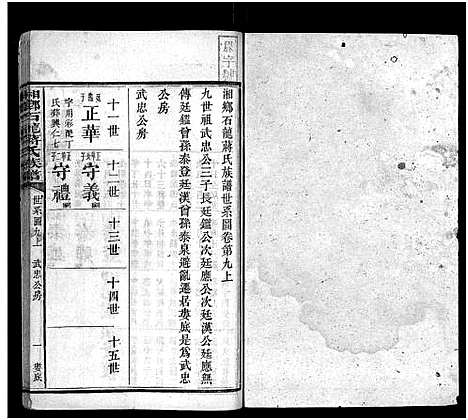 湘鄉石龍蔣氏族譜世系圖卷第九上
九世祖武忠公三子長廷鑑公次廷漢公次廷應公無
傳廷鑑曾孫泰登廷漢曾孫泰泉避亂遷居婁底是爲武忠
公房
武忠公房
十一世 十二世 十三世 十四世 十五世
正華 守義
守禮
湘鄉石龍蔣氏族譜 世系圖九上 武忠公房 一 婁底